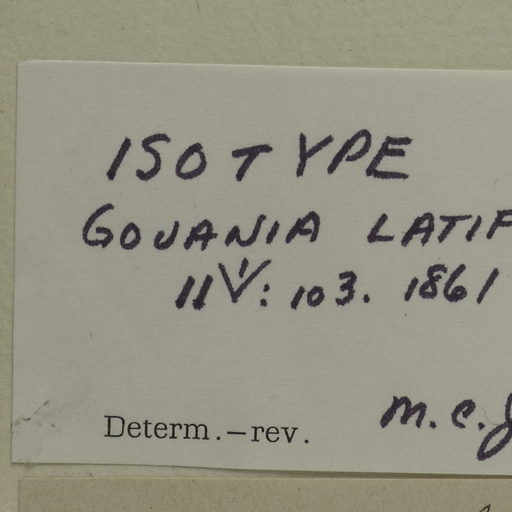 ISOTYPE
GOUANIA LATIF
11V: 103. 1861
Determ.—rev. M.C.J